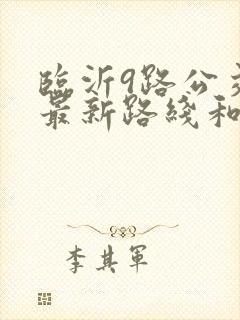 臨沂9路公交
最新路綫和
李其軍